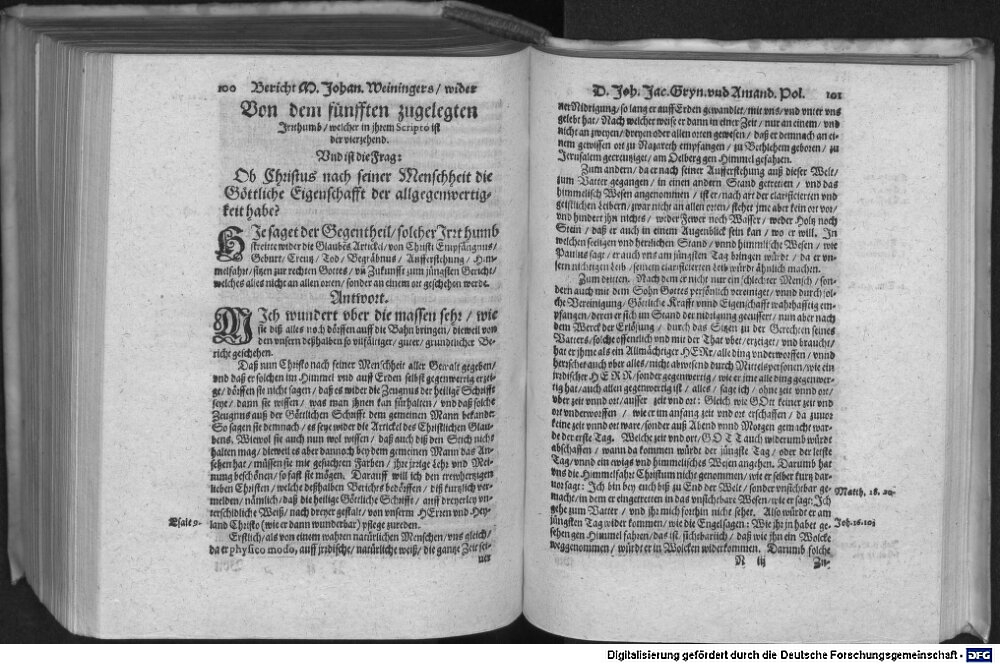 100 Bericht M. Johan. Weiningers / wider
Von dem fünfften zugelegten
Irrthumb / welcher in jhrem Scripto ist
der vierzehend.
Vnd ist die Frag:
Ob Christus nach seiner Menschheit die
Göttliche Eigenschafft der allgegenwertig-
keit habe?
HIe saget der Gegentheil / solcher Irrthumb
streitte wider die Glaubēs Artickel / von Christi Empfängnus /
Geburt / Creutz / Tod / Begräbnus / Aufferstehung / Him-
melfahrt / sitzen zur rechten Gottes / vñ Zukunfft zum jüngsten Gericht /
welches alles nicht an allen orten / sonder an einem ort geschehen werde.
Antwort.
MIch wundert vber die massen sehr / wie
sie diß alles noch dörffen auff die Bahn bringen / dieweil von
den vnsern deßhalben so vilfältiger / guter / gründtlicher Be-
richt geschehen.
Daß nun Christo nach seiner Menschheit aller Gewalt gegeben /
vnd daß er solchen im Himmel vnd auff Erden selbst gegenwertig erzei-
ge / dörffen sie nicht sagen / daß es wider die Zeugnus der heiligē Schrifft
seye / dann sie wissen / was man jhnen kan fürhalten / vnd daß solche
Zeugnus auß der Göttlichen Schrifft dem gemeinen Mann bekandt.
So sagen sie demnach / es seye wider die Artickel des Christlichen Glau-
bens. Wiewol sie auch nun wol wissen / daß auch diß den Stich nicht
halten mag / dieweil es aber dannoch bey dem gemeinen Mann das An-
sehen hat / müssen sie mit gesuchten Farben / jhre jrrige Lehr vnd Mei-
nung beschönen / so fast sie mögen. Darauff will ich den trewhertzigen
lieben Christen / welche deßhalben Berichts bedörffen / diß kurtzlich ver-
melden / nämlich / daß die heilige Göttliche Schrifft / auff dreyerley vn-
terschidliche Weiß / nach dreyer gestalt / von vnserm HErren vnd Hey-
land Christo (wie er dann wunderbar) pflege zureden.
Erstlich / als von einem wahren natürlichen Menschen / vns gleich /
da er physico modo, auff jrrdische / natürliche weiß / die gantze Zeit sei-
ner
D. Joh. Jac. Gryn. vnd Amand. Pol. 101
ner Nidrigung / so lang er auff Erden gewandlet / mit vns / vnd vnter vns
gelebt hat / Nach welcher weise er dann in einer Zeit / nur an einem / vnd
nicht an zweyen / dreyen oder allen orten gewesen / daß er demnach an ei-
nem gewissen ort zu Nazareth empfangen / zu Bethlehem geboren / zu
Jerusalem gecreutziget / am Oelberg gen Himmel gefahren.
Zum andern / da er nach seiner Aufferstehung auß dieser Welt /
zum Vatter gegangen / in einen andern Stand getretten / vnd das
himmelisch Wesen angenommen / ist er / nach art der clarificierten vnd
geistlichen Leibern / zwar nicht an allen orten / stehet jme aber kein ort vor /
vnd hindert jhn nichts / weder Fewer noch Wasser / weder Holtz noch
Stein / daß er auch in einem Augenblick sein kan / wo er will. In
welchen seeligen vnd herrlichen Stand / vnnd himmlische Wesen / wie
Paulus sagt / er auch vns am jüngsten Tag bringen würdt / da er vn-
sern nichtigen Leib / seinem clarificierten Leib würdt ähnlich machen.
Zum dritten. Nach dem er nicht nur ein schlechter Mensch / son-
dern auch mit dem Sohn Gottes persönlich vereiniget / vnnd durch sol-
che Vereinigung / Göttliche Krafft vnnd Eigenschafft warhafftig em-
pfangen / deren er sich im Stand der nidrigung geeussert / nun aber nach
dem Werck der Erlösung / durch das Sitzen zu der Gerechten seines
Vatters / solche offentlich vnd mit der That vbet / erzeiget / vnd braucht /
hat er jhme als ein Allmächtiger HERr / alle ding vnderworffen / vnnd
herrschet auch vber alles / nicht abwesend durch Mittelspersonen / wie ein
jrrdischer HERR / sonder gegenwertig / wie er jme alle ding gegenwer-
tig hat / auch allen gegenwertig ist / alles / sage ich / ohne zeit vnnd ort /
vber zeit vnnd ort / ausser zeit vnd ort: Gleich wie GOtt keiner zeit vnd
ort vnderworffen / wie er im anfang zeit vnd ort erschaffen / da zuuor
keine zeit vnnd ort ware / sonder auß Abend vnnd Morgen gemacht war-
de der erste Tag. Welche zeit vnd ort / GOTT auch widerumb würdt
abschaffen / wann da kommen würdt der jüngste Tag / oder der letste
Tag / vnnd ein ewigs vnd himmelisches Wesen angehen. Darumb hat
vns die Himmelfahrt Christi nicht genommen / wie er selber kurtz dar-
vor sagt: Ich bin bey euch biß zu End der Welt / sonder vnsichtbar ge-
macht / in dem er eingetretten in das vnsichtbare Wesen / wie er sagt: Ich
gehe zum Vatter / vnd jhr mich forthin nicht sehet. Also würdt er am
jüngsten Tag wider kommen / wie die Engel sagen: Wie jhr jn habet ge-
sehen gen Himmel fahren / das ist / sichtbarlich / daß wie jhn ein Wolcke
weggenommen / würdt er in Wolcken widerkommen. Darumb solche
N iij Zu-
Matth. 28. 20.
Joh. 16. 10.